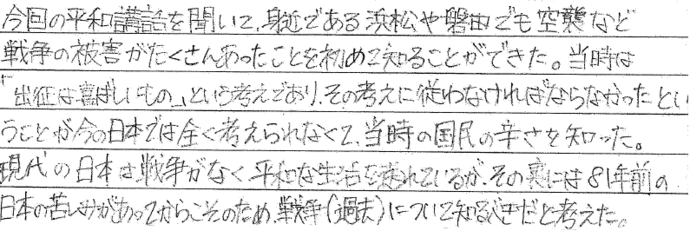 今回の平和講話を聞いて、身近である浜松や磐田でも空襲など
戦争の被害がたくさんあったことを初めて知ることができた。当時は
「出征は喜ばしいもの」という考えであり、その考えに従わなければならなかったとい
うことが今の日本では全く考えられなくて、当時の国民の辛さを知った。
現代の日本は、戦争がなく平和な生活を送れているが、その裏には81年前の
日本の苦しみがあってからこそのため、戦争(過去)について知るべきだと考えた。